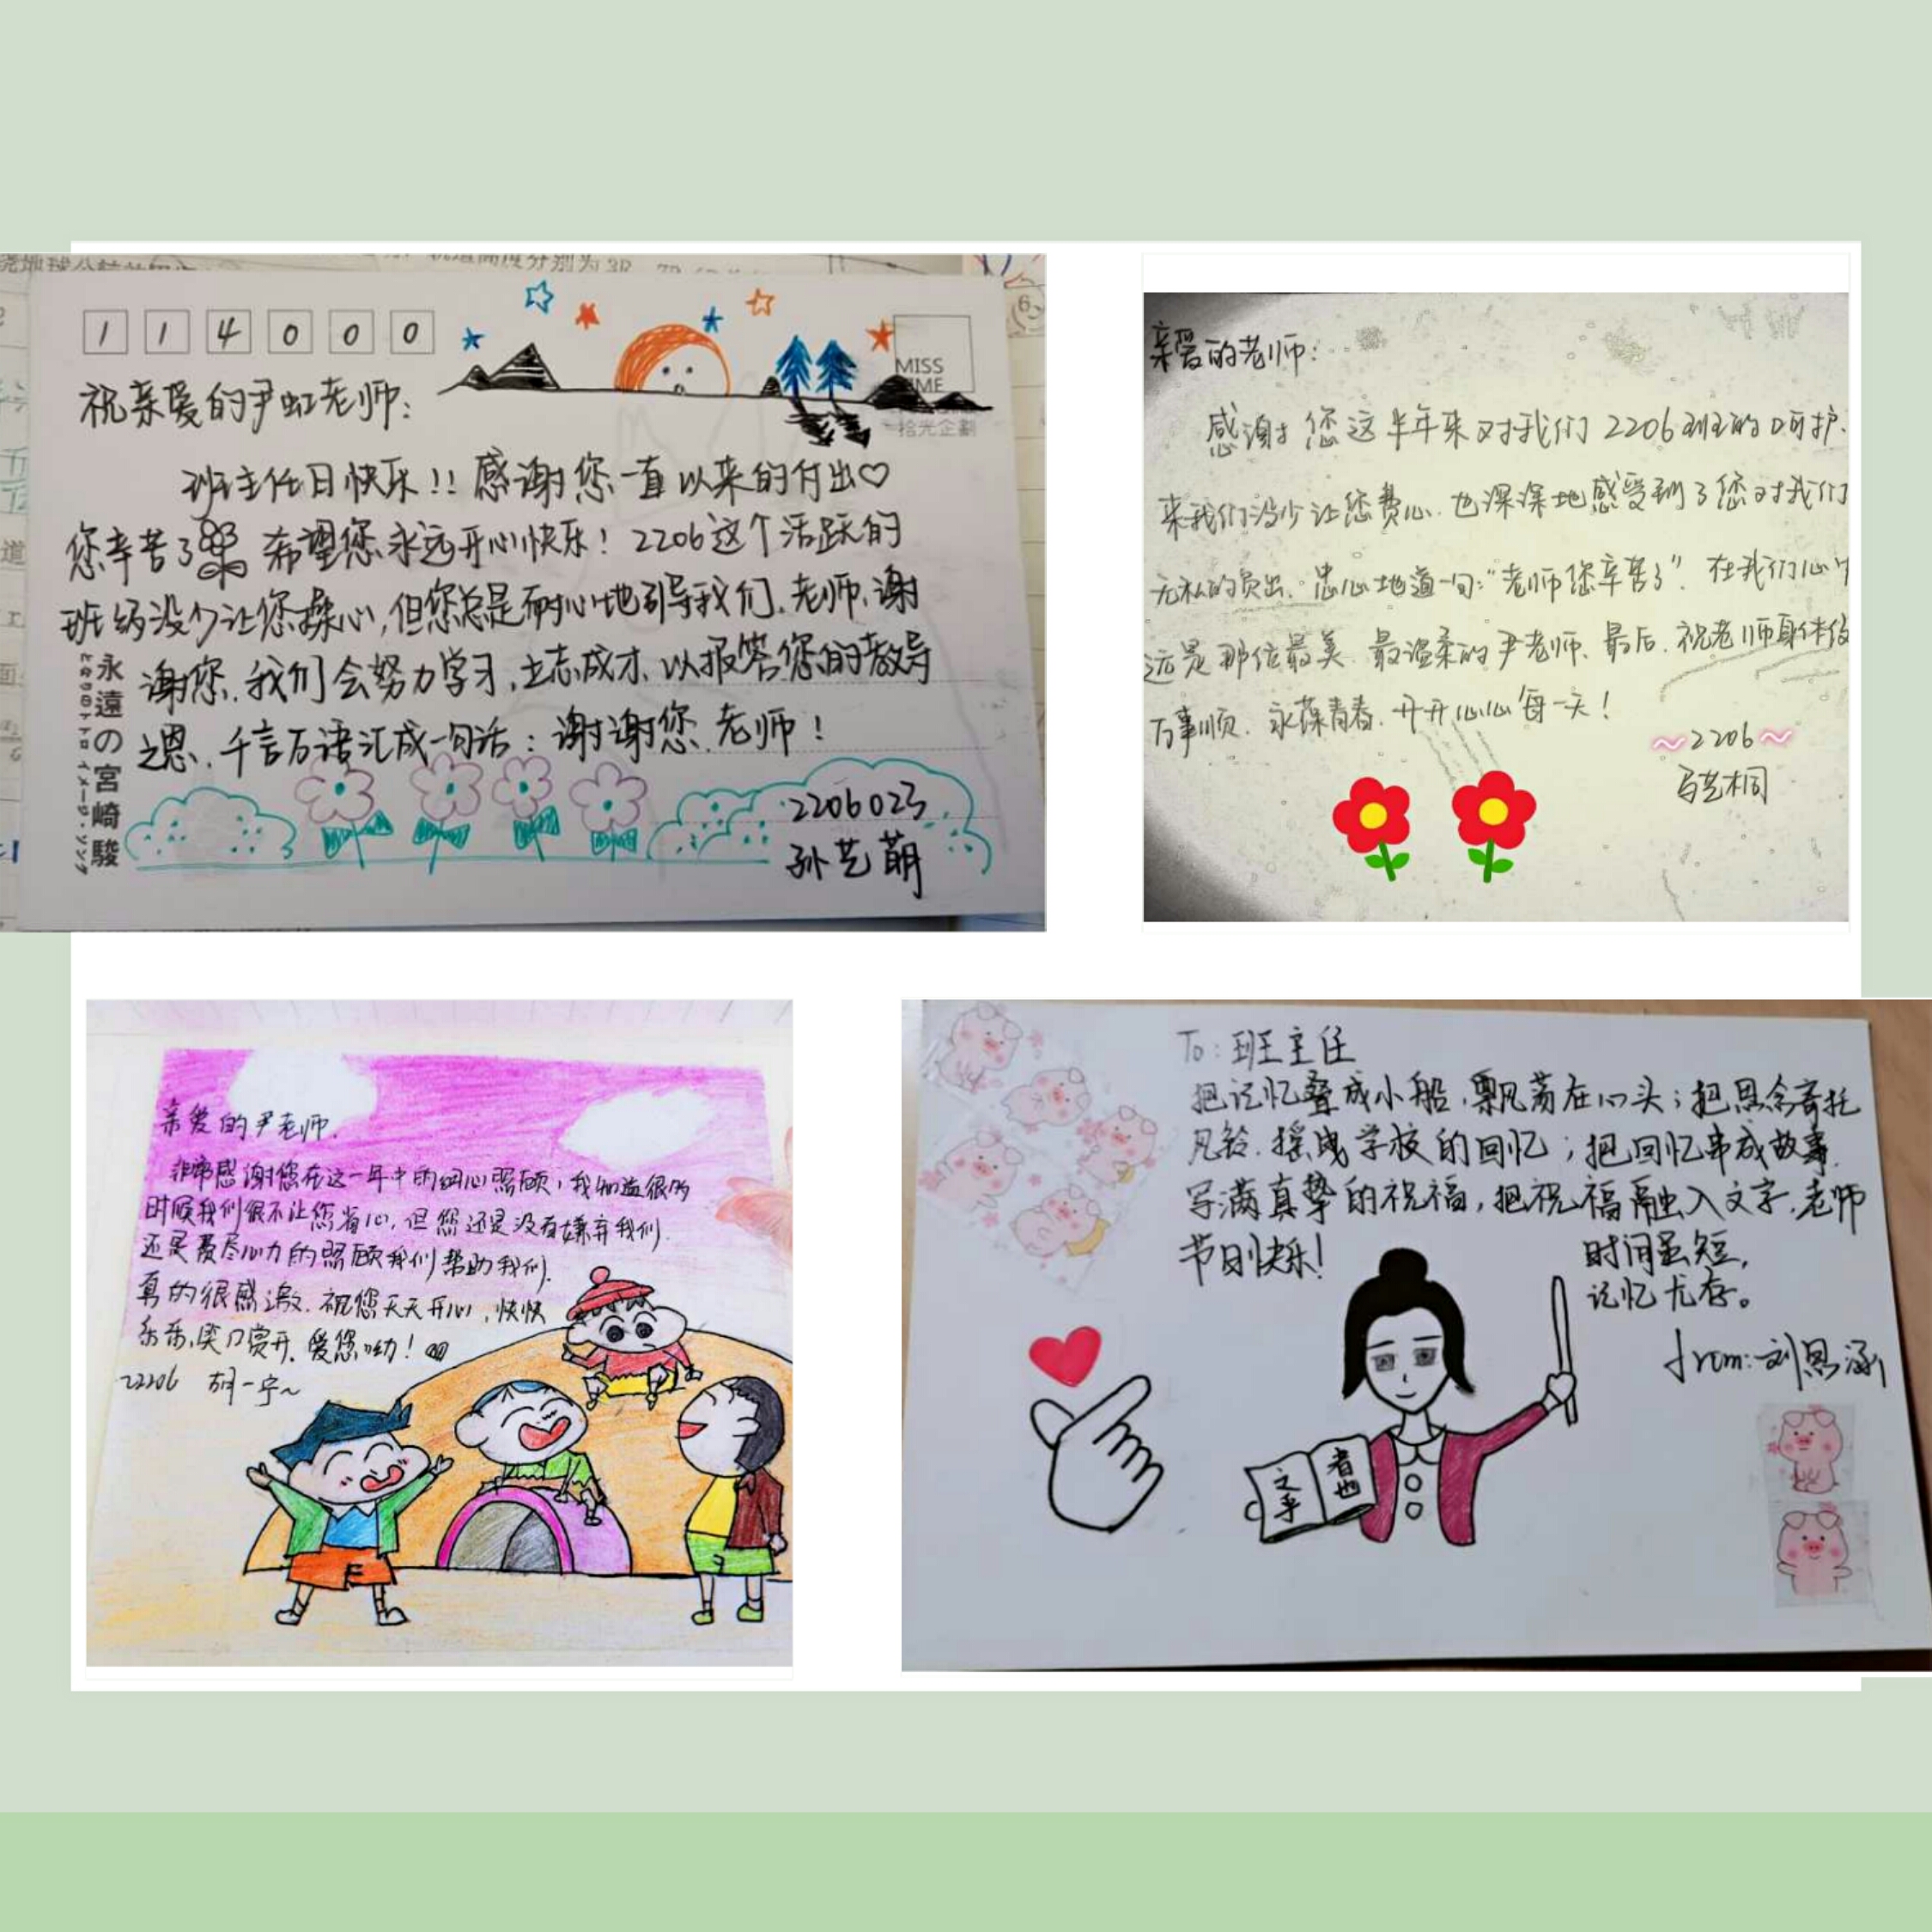 114000
MISS
拾光企劃
祝亲爱的尹虹老师:
班主任日快乐!! 感谢您一直以来的付出♡
您辛苦了 希望您永远开心快乐! 2206这个活跃的
班级没少让您操心,但您总是耐心地引导我们.老师,谢
谢您.我们会努力学习,立志成才.以报答您的教导
之恩.千言万语汇成一句话:谢谢您.老师!
2206023
孙艺萌
永遠の宮崎駿
亲爱的老师:
感谢您这半年来对我们2206班的呵护.
来我们没少让您费心.也深深地感受到了您对我们
无私的负出.忠心地道一句:"老师您辛苦了".在我们心
远是那位最美.最温柔的尹老师.最后.祝老师身体
万事顺.永葆青春.开开心心每一天!
~2206~
马艺桐
亲爱的尹老师.
非常感谢您在这一年中的细心照顾,我知道很多
时候我们很不让您省心,但您还是没有嫌弃我们.
还是费尽心力的照顾我们帮助我们.
真的很感激.祝您天天开心,快快
乐乐,笑口常开.爱您呦!
2206 胡一宁~
To:班主任
把记忆叠成小船,飘荡在心头;把思念寄托
风铃.摇曳学校的回忆;把回忆串成故事.
写满真挚的祝福,把祝福融入文字,老师
节日快乐!
时间虽短,
记忆尤存。
from:刘恩涵
之乎
者也